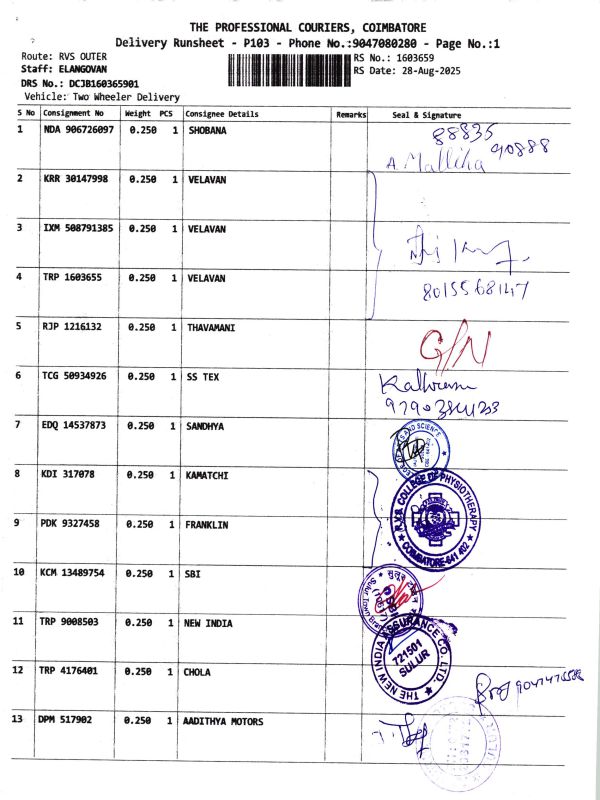 THE PROFESSIONAL COURIERS, COIMBATORE
Delivery Runsheet - P103 - Phone No.:9047080280 - Page No.:1
Route: RVS OUTER
RS No.: 1603659
Staff: ELANGOVAN
RS Date: 28-Aug-2025
DRS No.: DCJB160365901
Vehicle: Two Wheeler Delivery
S No Consignment No Weight PCS Consignee Details Remarks Seal & Signature
1 NDA 906726097 0.250 1 SHOBANA 88835
90888
A. Malliha
2 KRR 30147998 0.250 1 VELAVAN
3 IXM 508791385 0.250 1 VELAVAN
4 TRP 1603655 0.250 1 VELAVAN
8015568147
5 RJP 1216132 0.250 1 THAVAMANI G/N
6 TCG 50934926 0.250 1 SS TEX
7 EDQ 14537873 0.250 1 SANDHYA
AND SCIENCE
8 KDI 317078 0.250 1 KAMATCHI
R.V.S. COLLEGE OF PHYSIOTHERAPY
COIMBATORE-641 402
9 PDK 9327458 0.250 1 FRANKLIN
10 KCM 13489754 0.250 1 SBI
सुलूर
11 TRP 9008503 0.250 1 NEW INDIA
THE NEW INDIA ASSURANCE CO. LTD.
721501
SULUR
12 TRP 4176401 0.250 1 CHOLA
13 DPM 517902 0.250 1 AADITHYA MOTORS